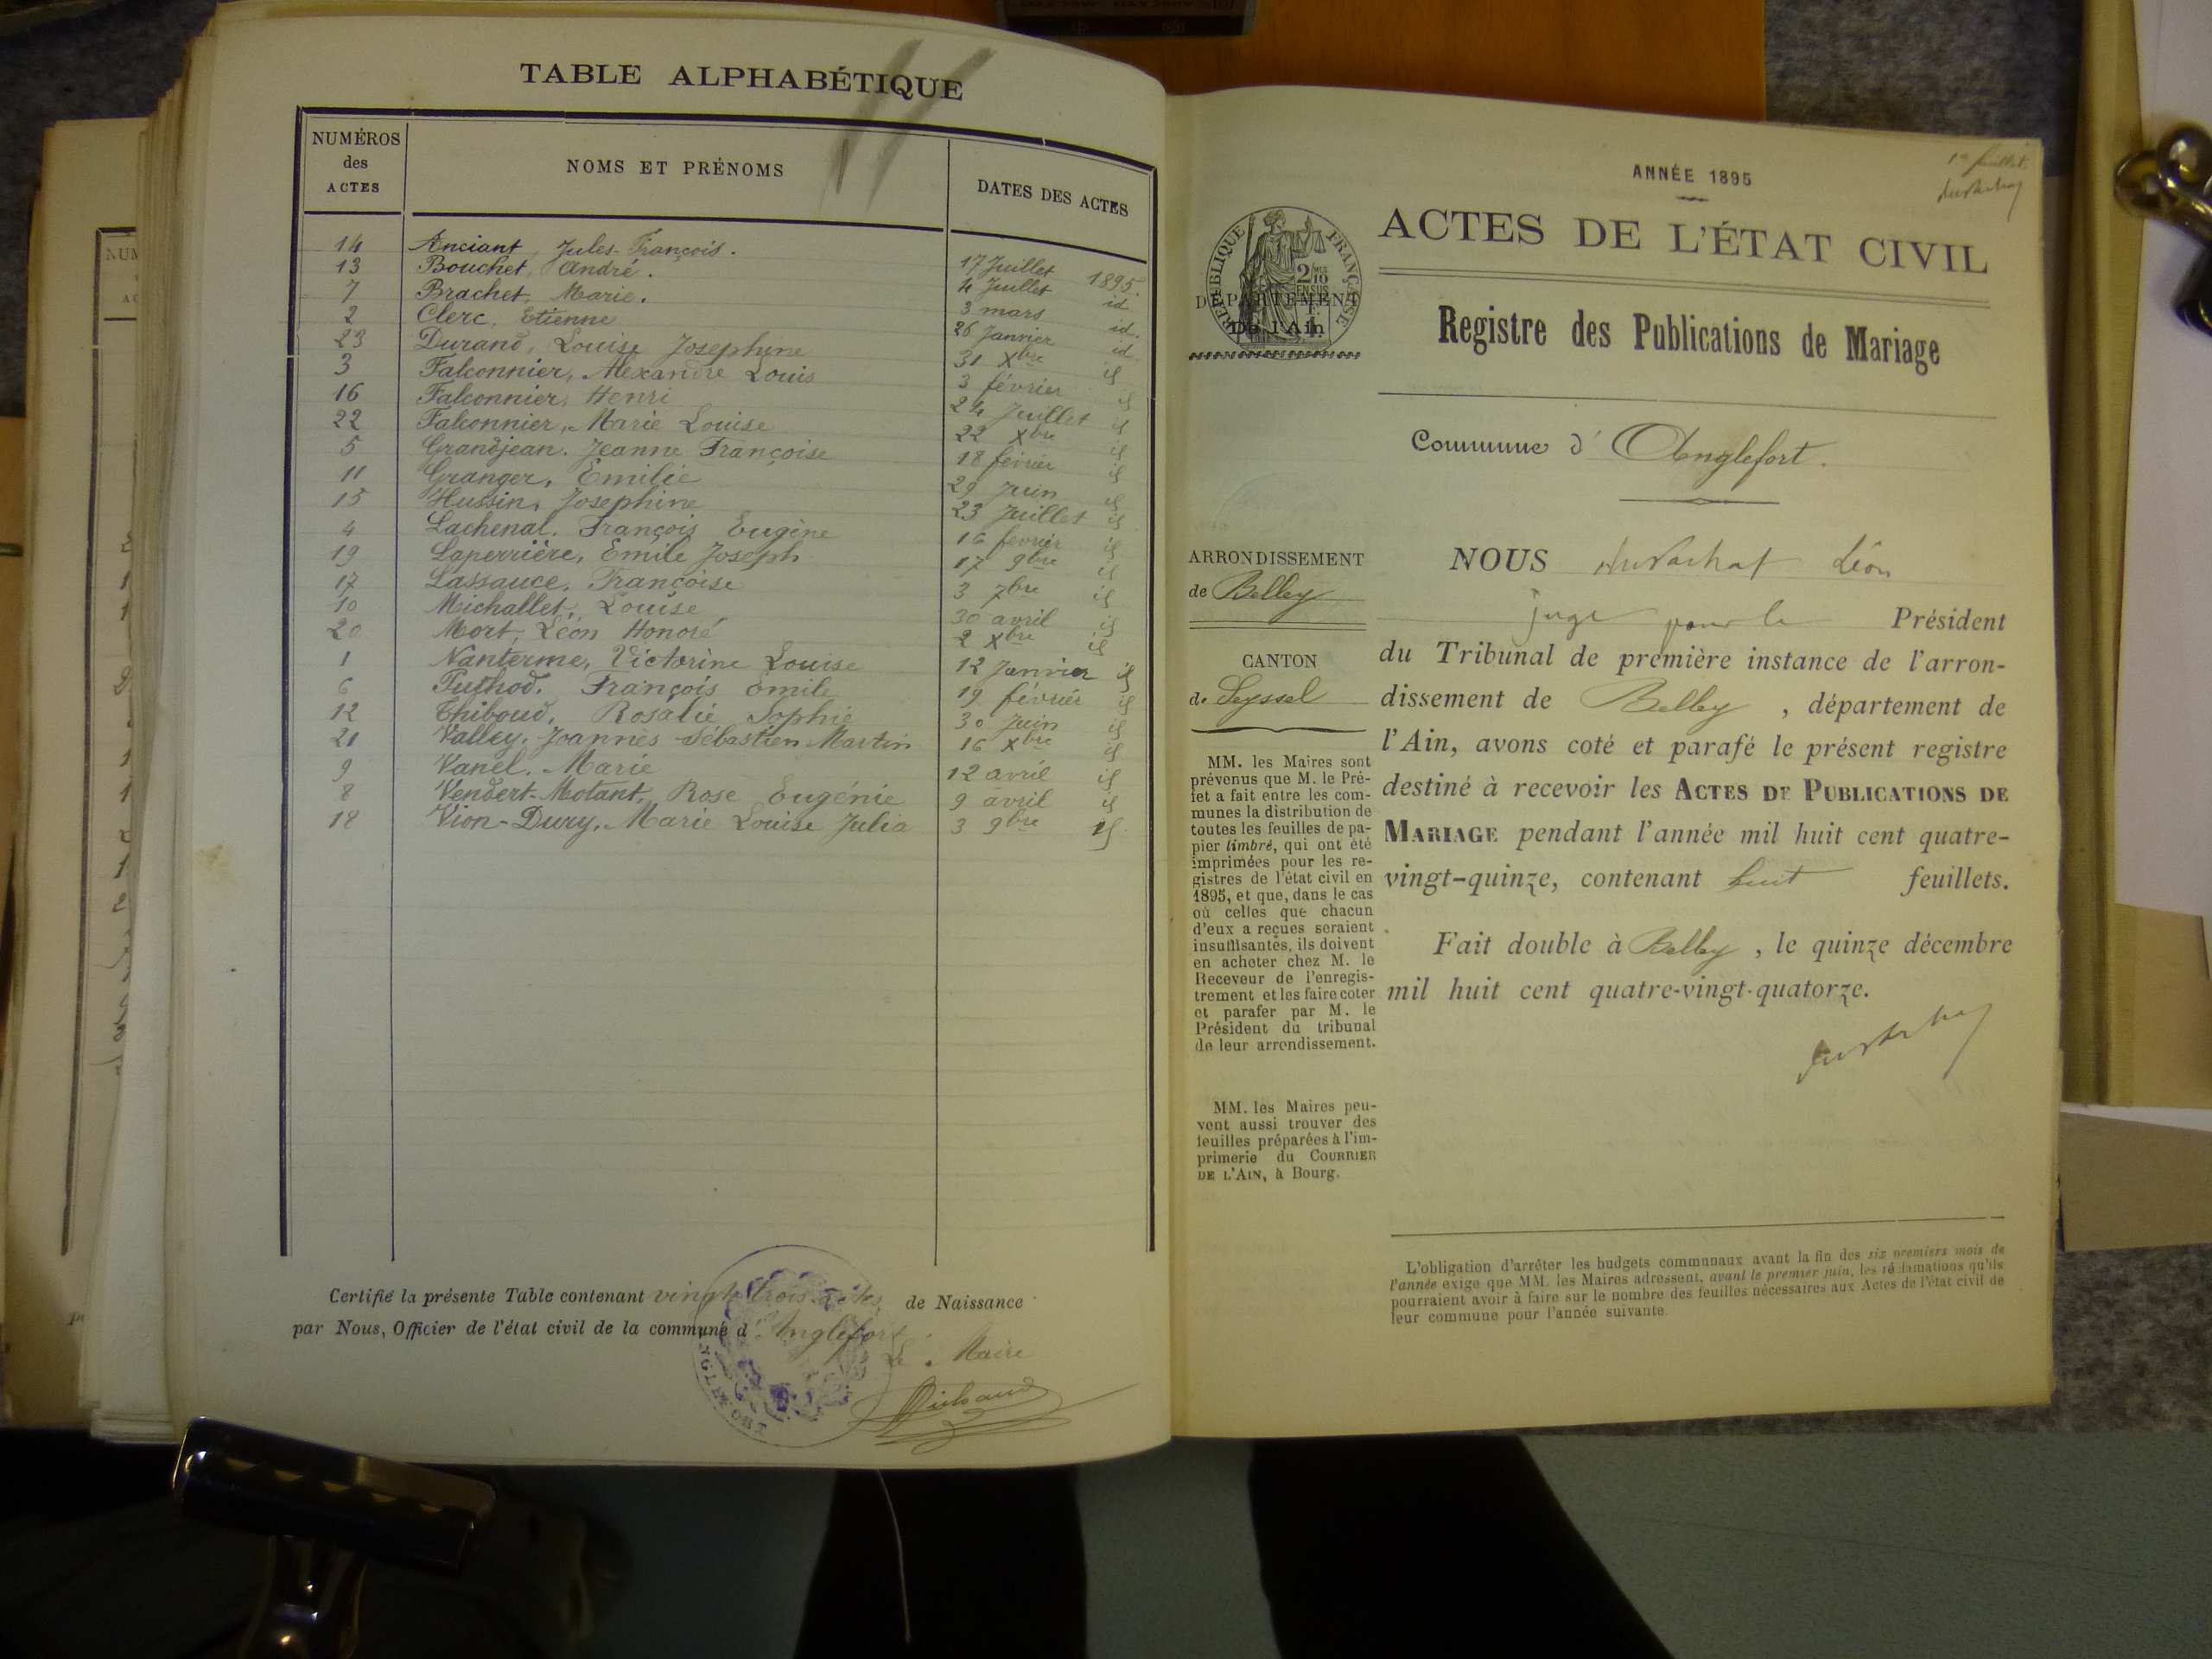 TABLE ALPHABÉTIQUE
NUMÉROS des ACTES NOMS ET PRÉNOMS DATES DES ACTES
14 Anciant, Jules François. 17 Juillet 1895
13 Bouchet, André. 4 Juillet id
7 Brachet, Marie. 3 mars id
2 Clerc, Etienne 26 Janvier id
23 Durand, Louise Josephine 31 Xbre id
3 Falconnier, Alexandre Louis 3 février id
16 Falconnier, Henri 24 Juillet id
22 Falconnier, Marie Louise 22 Xbre id
5 Grandjean. Jeanne Françoise 18 février id
11 Granger, Emilie 29 Juin id
15 Hussin, Josephine 23 Juillet id
4 Lachenal. François Eugène 16 février id
19 Laperrière, Emile Joseph 17 9bre id
17 Lassauce, Françoise 3 7bre id
10 Michallet, Louise 30 avril id
20 Mort, Léon Honoré 2 Xbre id
1 Nanterme, Victorine Louise 12 Janvier id
6 Puthod. François Emile 19 février id
12 Thiboud, Rosalie Sophie 30 Juin id
21 Valley, Joannès Sébastien Martin 16 Xbre id
9 Vanel. Marie 12 avril id
8 Vendert-Motant, Rose Eugénie 9 avril id
18 Vion-Dury, Marie Louise Julia 3 9bre id
Certifié la présente Table contenant vingt trois actes de Naissance
par Nous, Officier de l'état civil de la commune d'Anglefort
Le Maire
1er feuillet
ANNÉE 1895
ACTES DE L'ÉTAT CIVIL
RÉPUBLIQUE FRANÇAISE
2/10 EN SUS
DÉPARTEMENT
De l'Ain
Registre des Publications de Mariage
Commune d'Anglefort.
ARRONDISSEMENT
de Belley
CANTON
de Seyssel
MM. les Maires sont
prévenus que M. le Pré-
fet a fait entre les com-
munes la distribution de
toutes les feuilles de pa-
pier timbré, qui ont été
imprimées pour les re-
gistres de l'état civil en
1895, et que, dans le cas
où celles que chacun
d'eux a reçues seraient
insuffisantes, ils doivent
en acheter chez M. le
Receveur de l'enregis-
trement et les faire coter
et parafer par M. le
Président du tribunal
de leur arrondissement.
MM. les Maires peu-
vent aussi trouver des
feuilles préparées à l'im-
primerie du COURRIER
DE L'AIN, à Bourg.
NOUS Léon
juge pour le Président
du Tribunal de première instance de l'arron-
dissement de Belley, département de
l'Ain, avons coté et parafé le présent registre
destiné à recevoir les ACTES DE PUBLICATIONS DE
MARIAGE pendant l'année mil huit cent quatre-
vingt-quinze, contenant huit feuillets.
Fait double à Belley, le quinze décembre
mil huit cent quatre-vingt-quatorze.
L'obligation d'arrêter les budgets communaux avant la fin des six premiers mois de
l'année exige que MM. les Maires adressent, avant le premier juin, les réclamations qu'ils
pourraient avoir à faire sur le nombre des feuilles nécessaires aux Actes de l'état civil de
leur commune pour l'année suivante.